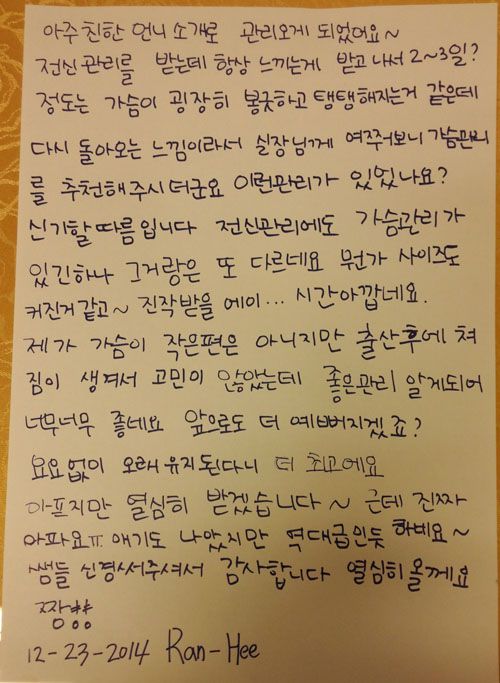 아주 친한 언니 소개로 관리오게 되었어요~
전신관리를 받는데 항상 느끼는게 받고 나서 2~3일?
정도는 가슴이 굉장히 봉긋하고 탱탱해지는거 같은데
다시 돌아오는 느낌이라서 실장님께 여쭈어보니 가슴관리
를 추천해주시더군요 이런관리가 있었나요?
신기할따름입니다 전신관리에도 가슴관리가
있긴하나 그거랑은 또 다르네요 뭔가 사이즈도
커진거같고~ 진작받을 에이... 시간아깝네요.
제가 가슴이 작은편은 아니지만 출산후에 쳐
짐이 생겨서 고민이 많았는데 좋은관리 알게되어
너무너무 좋네요 앞으로도 더 예뻐지겠죠?
요요없이 오래유지된다니 더 최고에요
아프지만 열심히 받겠습니다~ 근데 진짜
아파요ㅠ 얘기도 나았지만 역대급인듯 하비요~
쌤들 신경써주셔서 감사합니다 열심히올께요
짱짱
12-23-2014 Ran-Hee